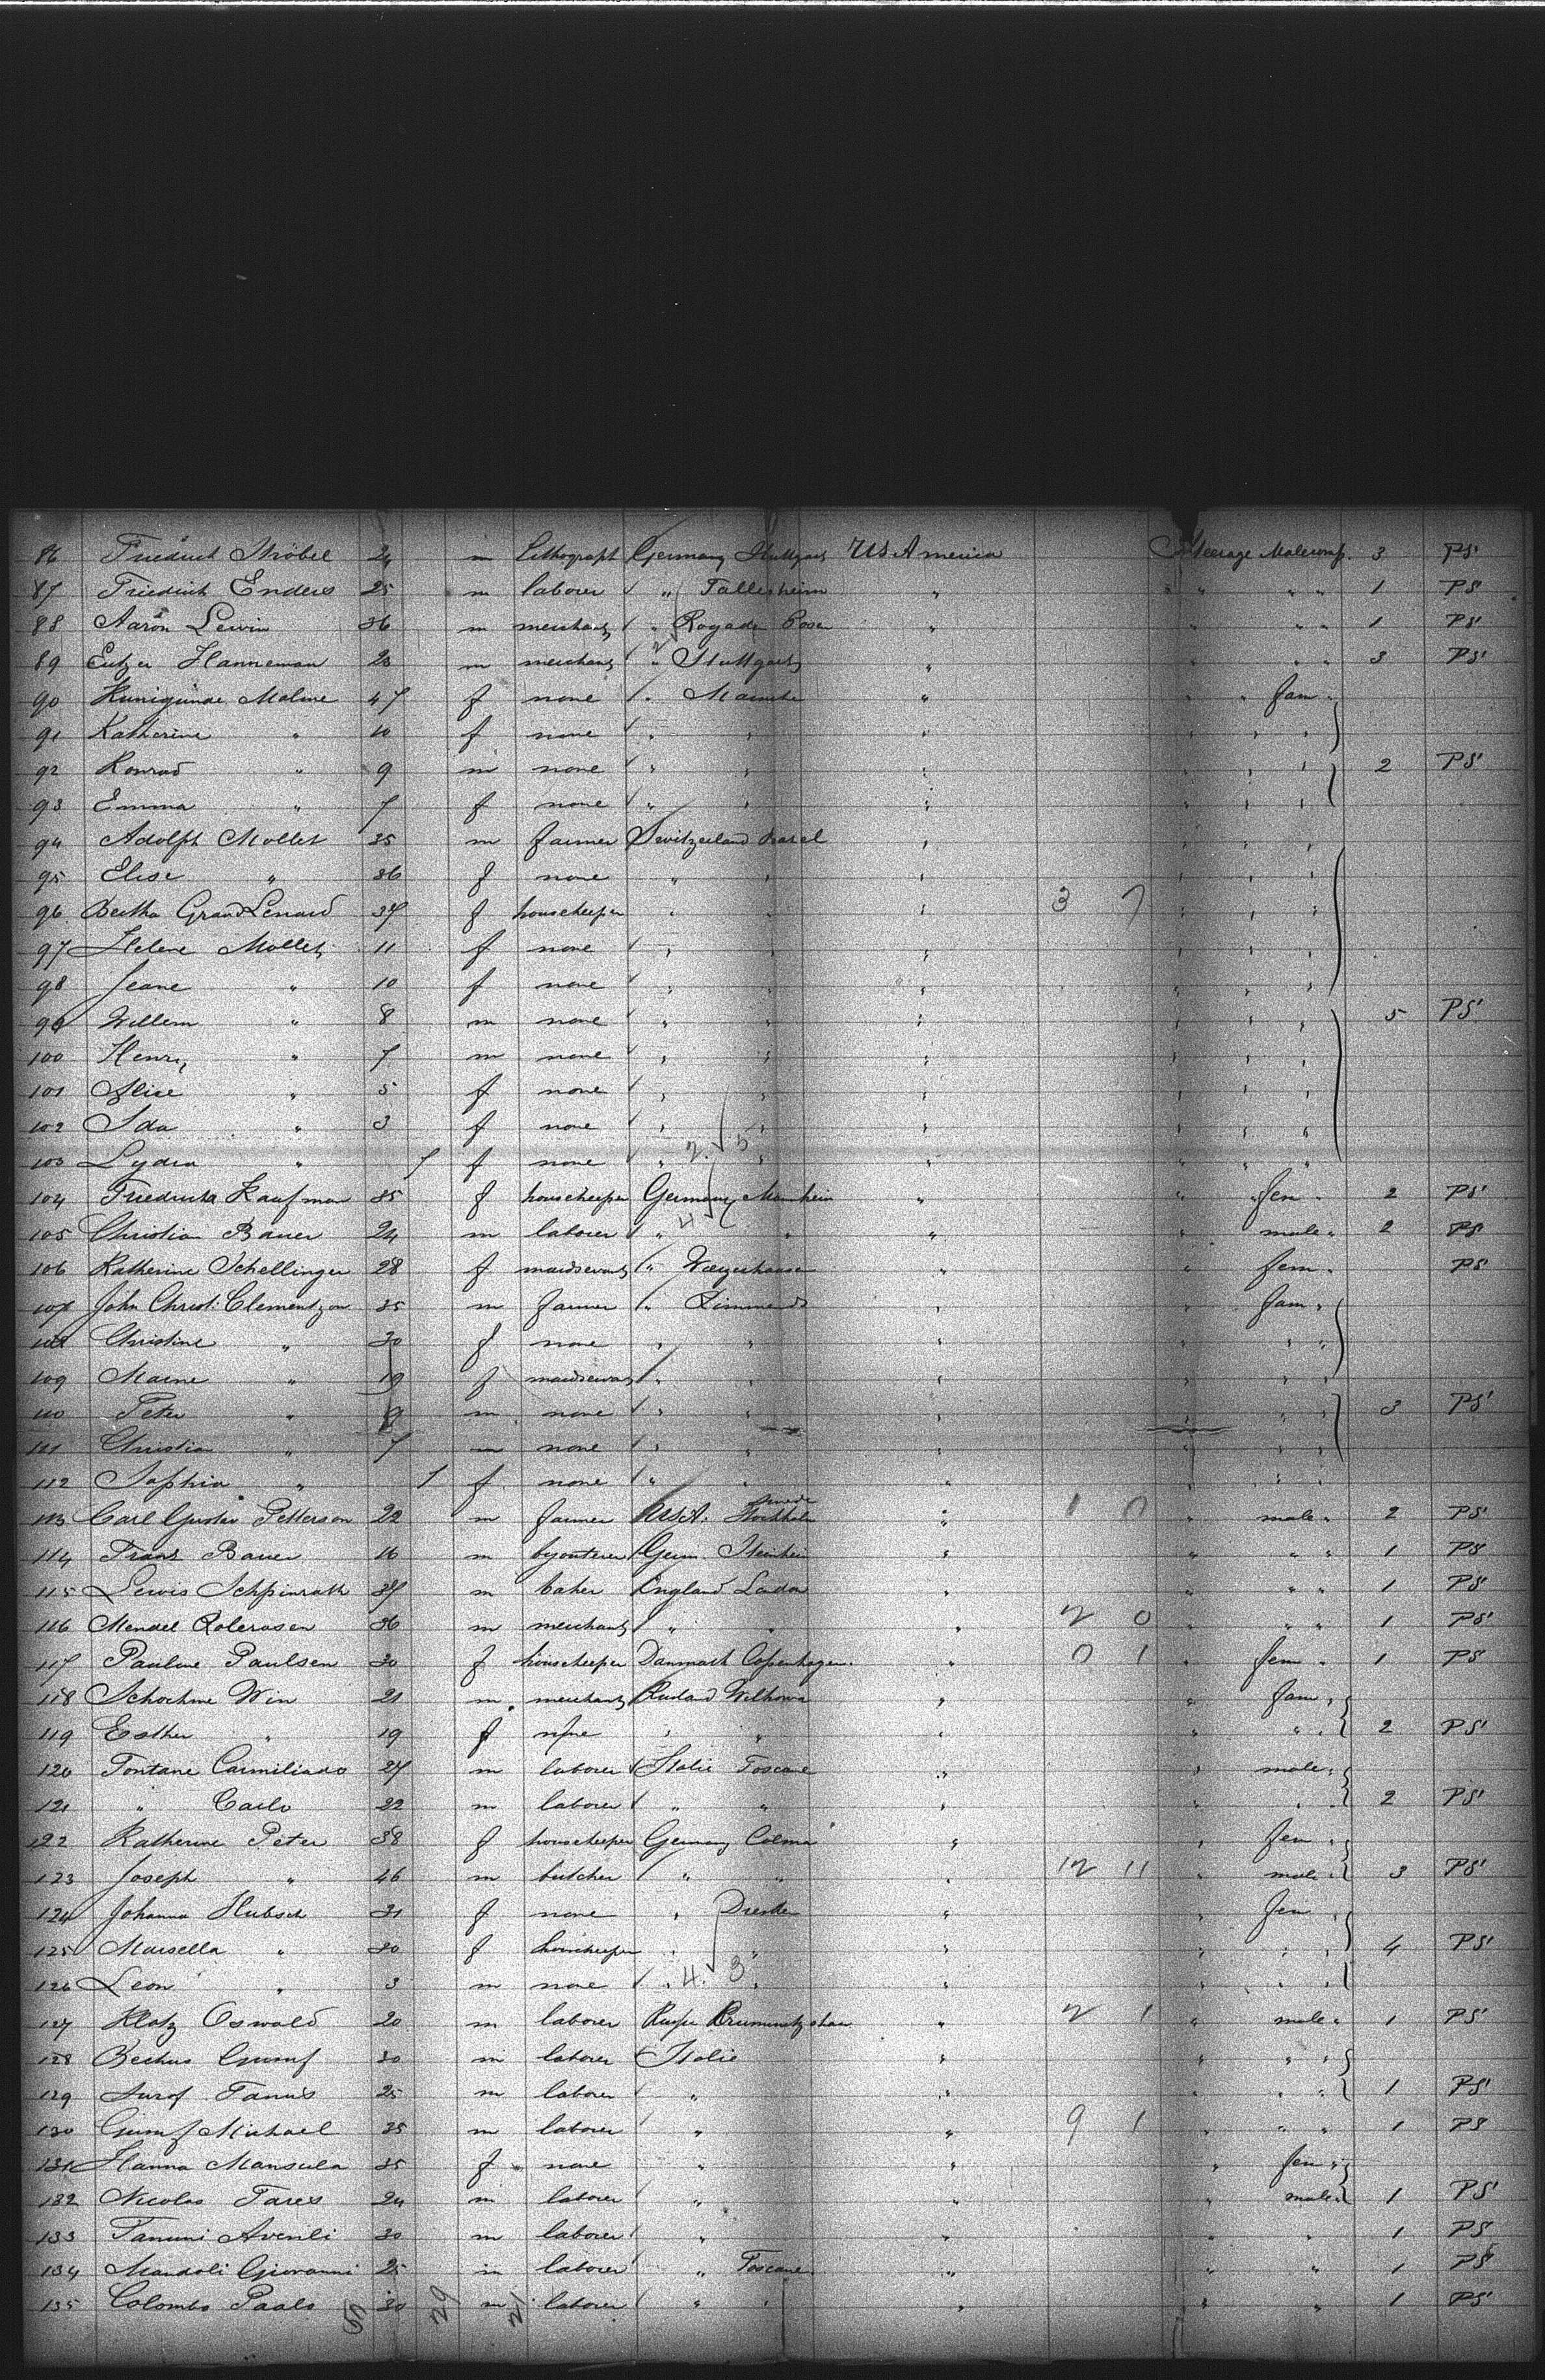 86 Friedrich Ströbel 24 m lithograph Germany Stuttgart US America Steerage Male comp. 3 PS
87 Friedrich Enders 25 m laborer " Tallesheim " " " " 1 PS
88 Aaron Lewin 36 m merchant " Rogada Posen " " " " 1 PS
89 Hanneman 23 m merchant " Stuttgart " " " 3 PS
90 Kunigunde Malme 47 f none " " " fam "
91 Katherine " 10 f none " " " " " "
92 Konrad " 9 m none " " " " " " 2 PS
93 Emma " 7 f none " " " " " "
94 Adolph Mollet 35 m farmer Switzerland Basel " " " "
95 Elise " 36 f none " " " " " "
96 Bertha Grand Lenard 37 f housekeeper " " " 3 7 " " "
97 Helene Mollet 11 f none " " " " " "
98 Jeane " 10 f none " " " " " "
99 Willem " 8 m none " " " " " " 5 PS
100 Henry " 7 m none " " " " " "
101 Alice " 5 f none " " " " " "
102 Ida " 3 f none " " " " " "
103 Lydia " 7 f none " 2 5 " " " " "
104 Friedricka Kaufman 35 f housekeeper Germany Manheim " " fem " 2 PS
105 Christian Bauer 24 m laborer " 4 " " " male " 2 PS
106 Katherine Schellinger 28 f maidservant " " " fem " PS
107 John Christ: Clementzon 35 m farmer " " " fam "
108 Christine " 30 f none " " " " " "
109 Marne " 19 f maidservant " " " " " "
110 Peter " 9 m none " " " " " " 3 PS
111 Christian " 7 m none " " " " "
112 Sophia " 1 f none " " " " " "
113 Carl Gustav Petterson 22 m farmer USA. Stockholm " 1 0 " male " 2 PS
114 Franz Bauer 16 m Germ. Steinheim " " " " 1 PS
115 Lewis Schpinrath 37 m baker England London " " " " 1 PS
116 Mendel 36 m merchant " " " 2 0 " " " 1 PS
117 Pauline Paulsen 30 f housekeeper Danmark Copenhagen " 0 1 " fem " 1 PS
118 Win 21 m merchant Rusland " " fam "
119 Esther " 19 f none " " " " " " 2 PS
120 Fontane Carmiliado 27 m laborer Italie Toscane " " male "
121 " Carlo 22 m laborer " " " " " 2 PS
122 Katherine Peter 38 f housekeeper Germany Colmar " " fem "
123 Joseph " 46 m butcher " " " 12 11 " male " 3 PS
124 Johanna Hubsch 31 f none " Dresden " " fem "
125 Marsella " 30 f housekeeper " " " " " " 4 PS
126 Leon " 3 m none " 4. 3 " " " " "
127 Klotz Oswald 20 m laborer " 2 1 " male " 1 PS
128 30 m laborer Italie " " " "
129 Tanus 25 m laborer " " " " " 1 PS
130 Michael 35 m laborer " " 9 1 " " " 1 PS
131 Hanna Mansula 35 f none " " " fem "
132 Nicolas Fares 24 m laborer " " " male " 1 PS
133 Tanuni Avenli 30 m laborer " " " " 1 PS
134 Mandoli Giovanni 25 m laborer " Toscane " " " 1 PS
135 Colombo Paolo 30 m laborer " " " " " 1 PS
29 21